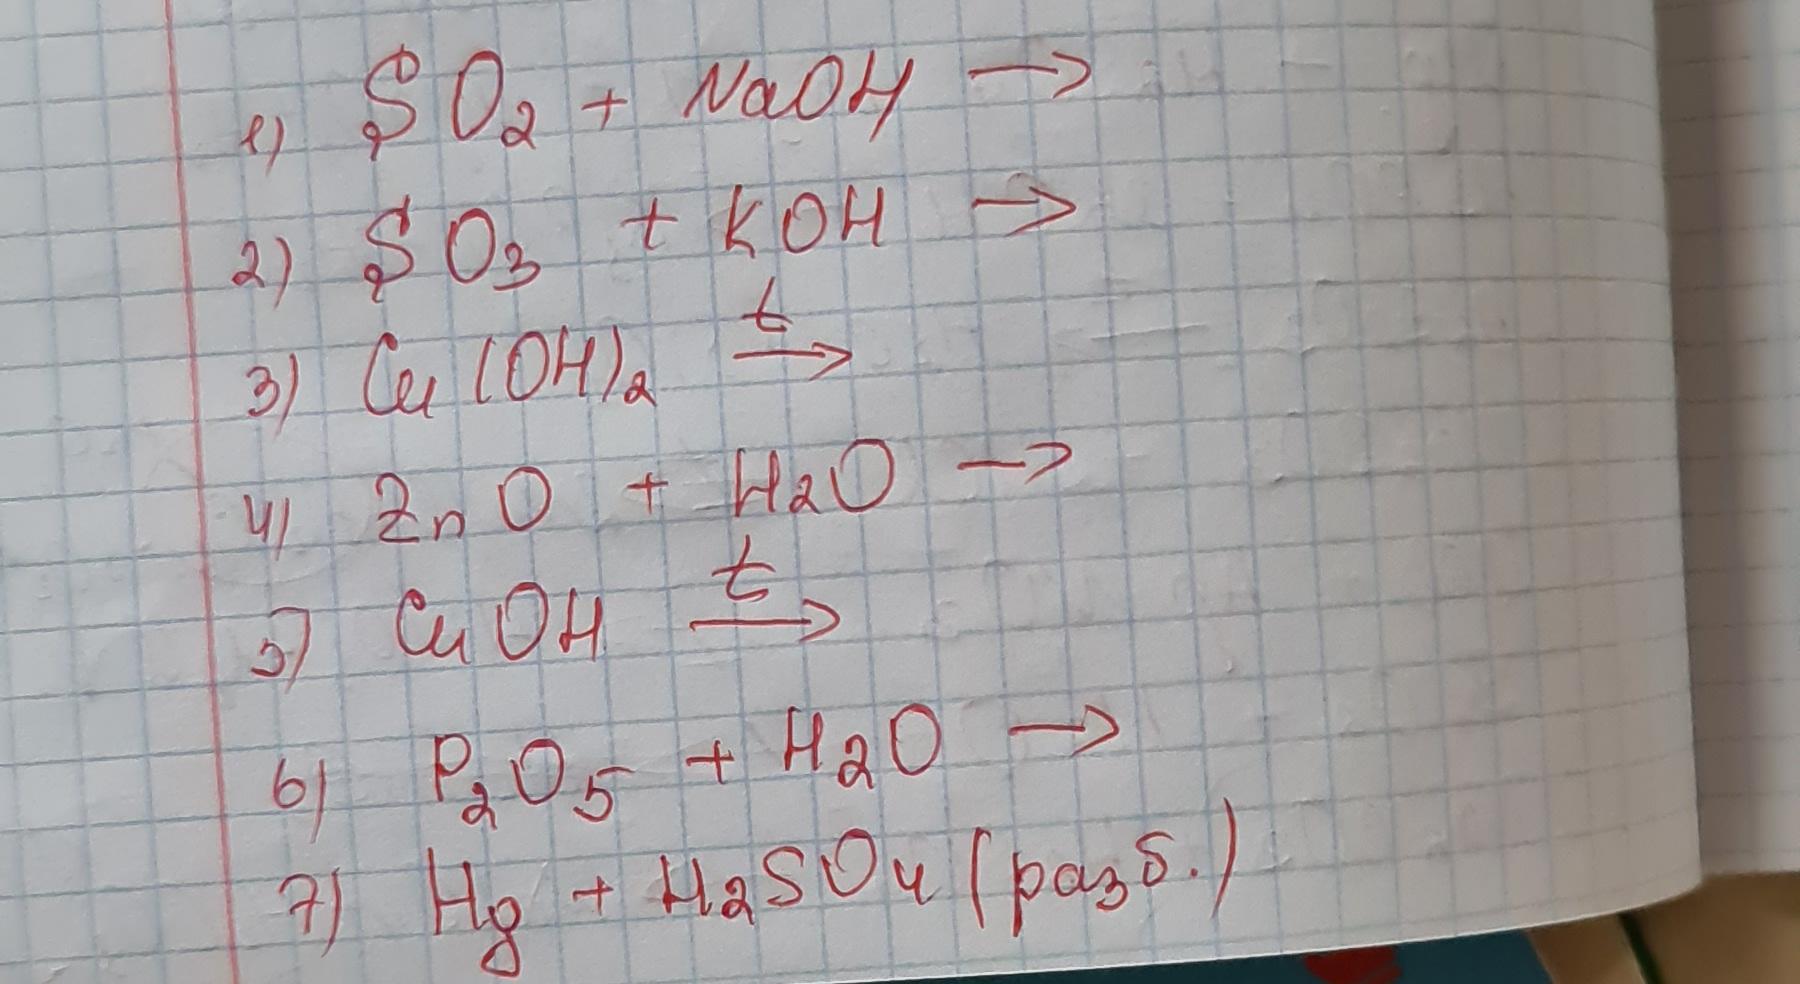 1) SO2 + NaOH →
2) SO3 + KOH →
3) Cu(OH)2 t→
4) ZnO + H2O →
5) CuOH t→
6) P2O5 + H2O →
7) Hg + H2SO4 (разб.)